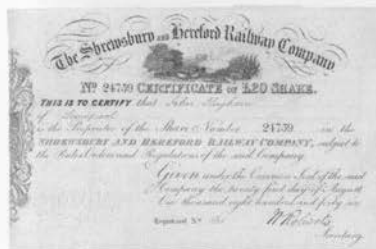 The Shrewsbury and Hereford Railway Company
No 24739 CERTIFICATE OF £20 SHARE.
THIS IS TO CERTIFY that
of Liverpool
is the Proprietor of the Share Number 24739 in the
SHREWSBURY AND HEREFORD RAILWAY COMPANY, subject to
the Rules Orders and Regulations of the said Company.
Given under the Common Seal of the said
Company the twenty first day of August
One thousand eight hundred and forty six
Registered No
Secretary